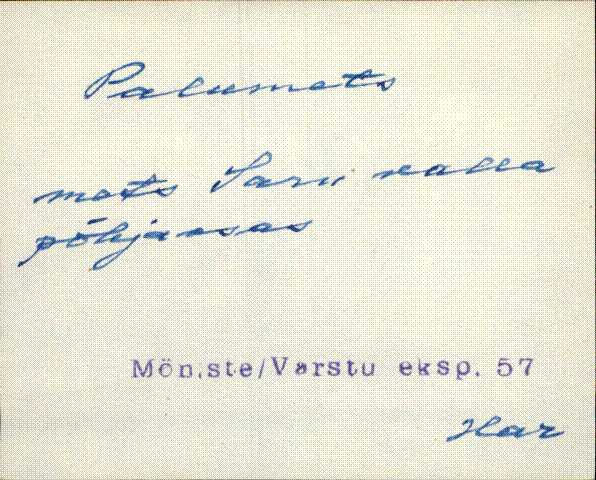 Palumets
mets Saru valla
põhjaosas
Mõn.ste/Varstu eksp. 57
Har